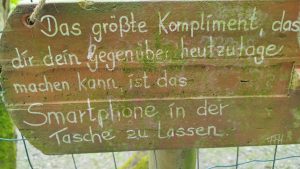 Das größte Kompliment, das
dir dein Gegenüber heutzutage
machen kann, ist das
Smartphone in der
Tasche zu lassen.